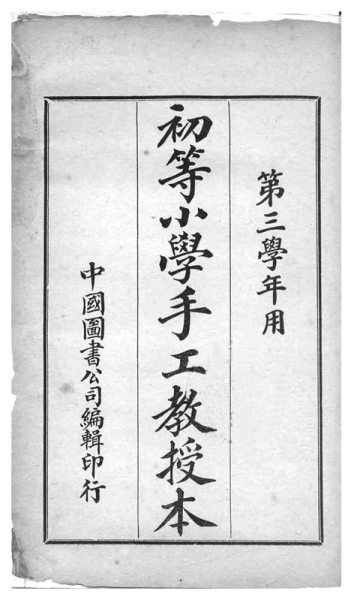 第三學年用
初等小學手工教授本
中國圖書公司編輯印行